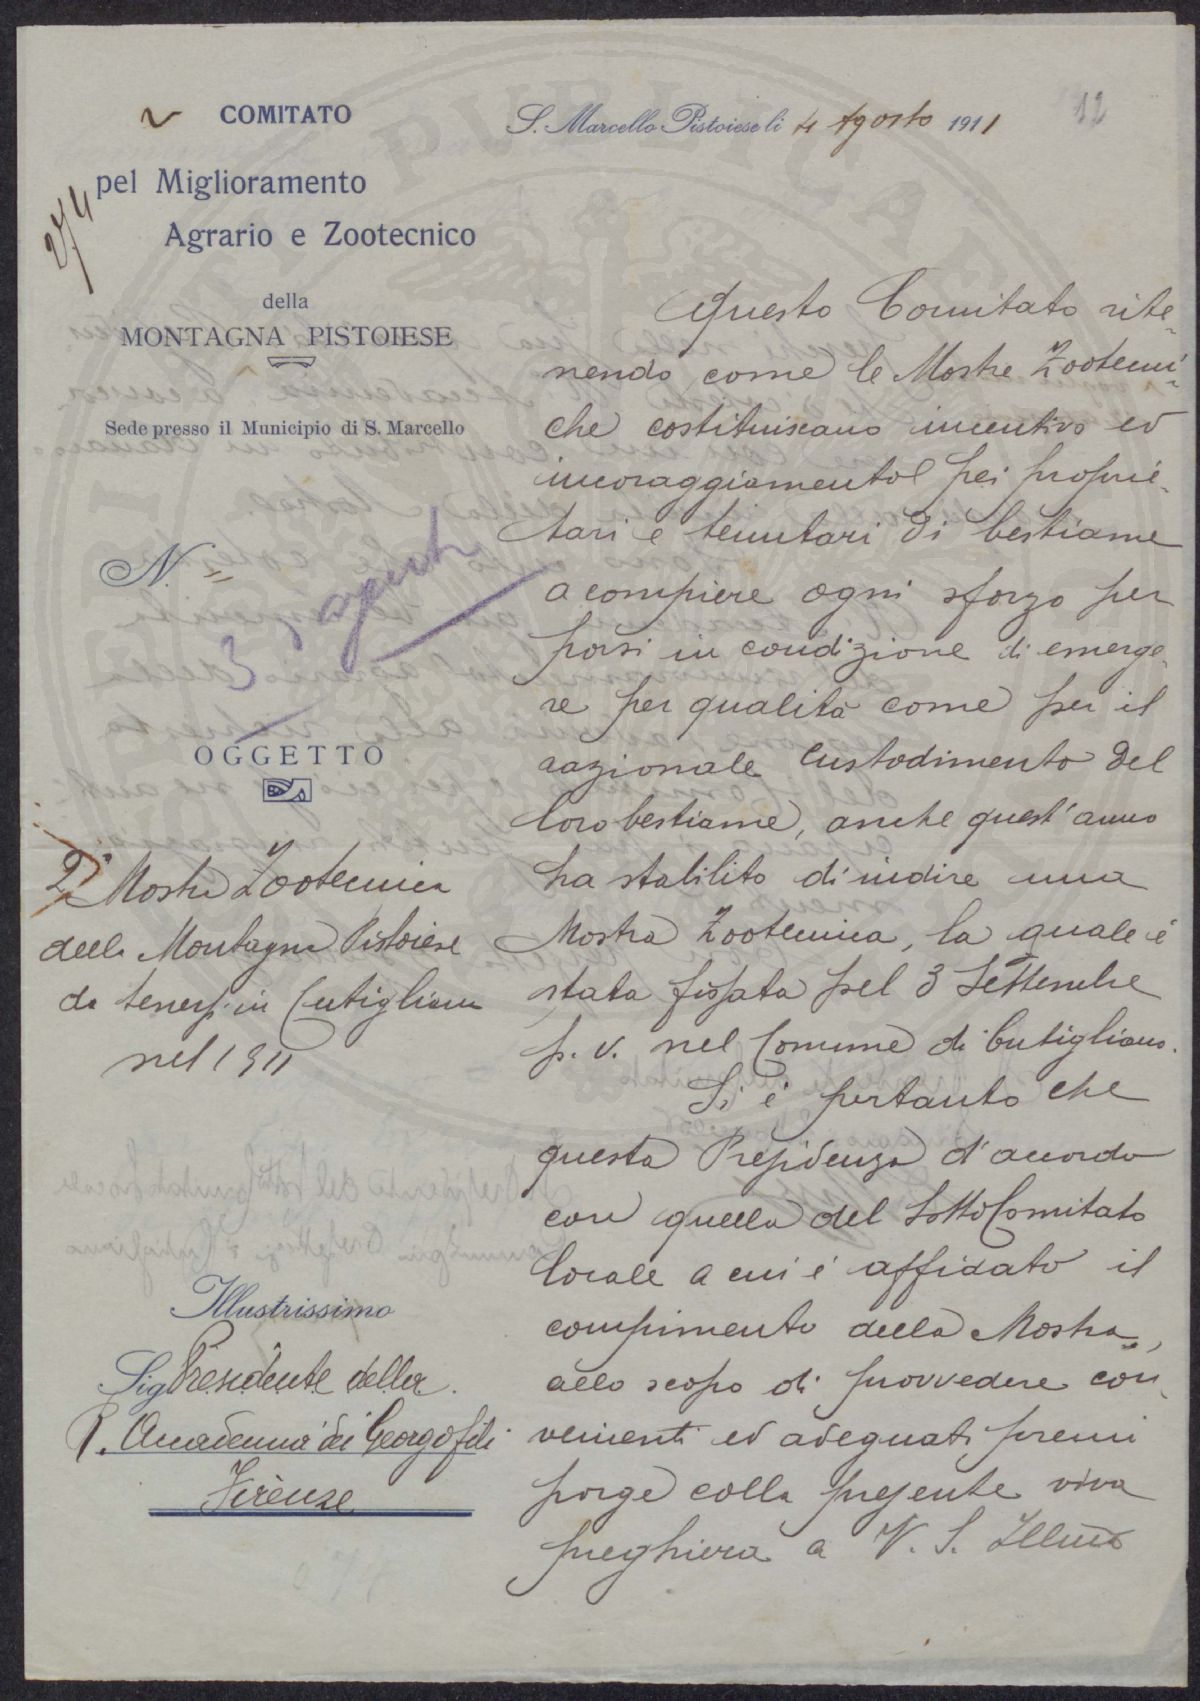 COMITATO
pel Miglioramento
Agrario e Zootecnico
della
MONTAGNA PISTOIESE
Sede presso il Municipio di S. Marcello
274
N. "
3 agosto
OGGETTO
2ª Mostra Zootecnica
della Montagna Pistoiese
da tenersi in Cutigliano
nel 1911
Illustrissimo
Sig Presidente della
R. Accademia dei Georgofili
Firenze
S. Marcello Pistoiese li 4 Agosto 1911
12
Questo Comitato rite-
nendo come le Mostre Zootecni-
che costituiscano incentivo ed
incoraggiamento pei proprie-
tari e tenutari di bestiame
a compiere ogni sforzo per
porsi in condizione di emerge-
re per qualità come per il
razionale custodimento del
loro bestiame, anche quest'anno
ha stabilito di indire una
Mostra Zootecnica, la quale è
stata fissata pel 3 Settembre
p. v. nel Comune di Cutigliano.
Si è pertanto che
questa Presidenza d'accordo
con quella del Sotto Comitato
locale a cui è affidato il
compimento della Mostra,
allo scopo di provvedere con-
venienti ed adeguati premi
porge colla presente viva
preghiera a V. S. Illma